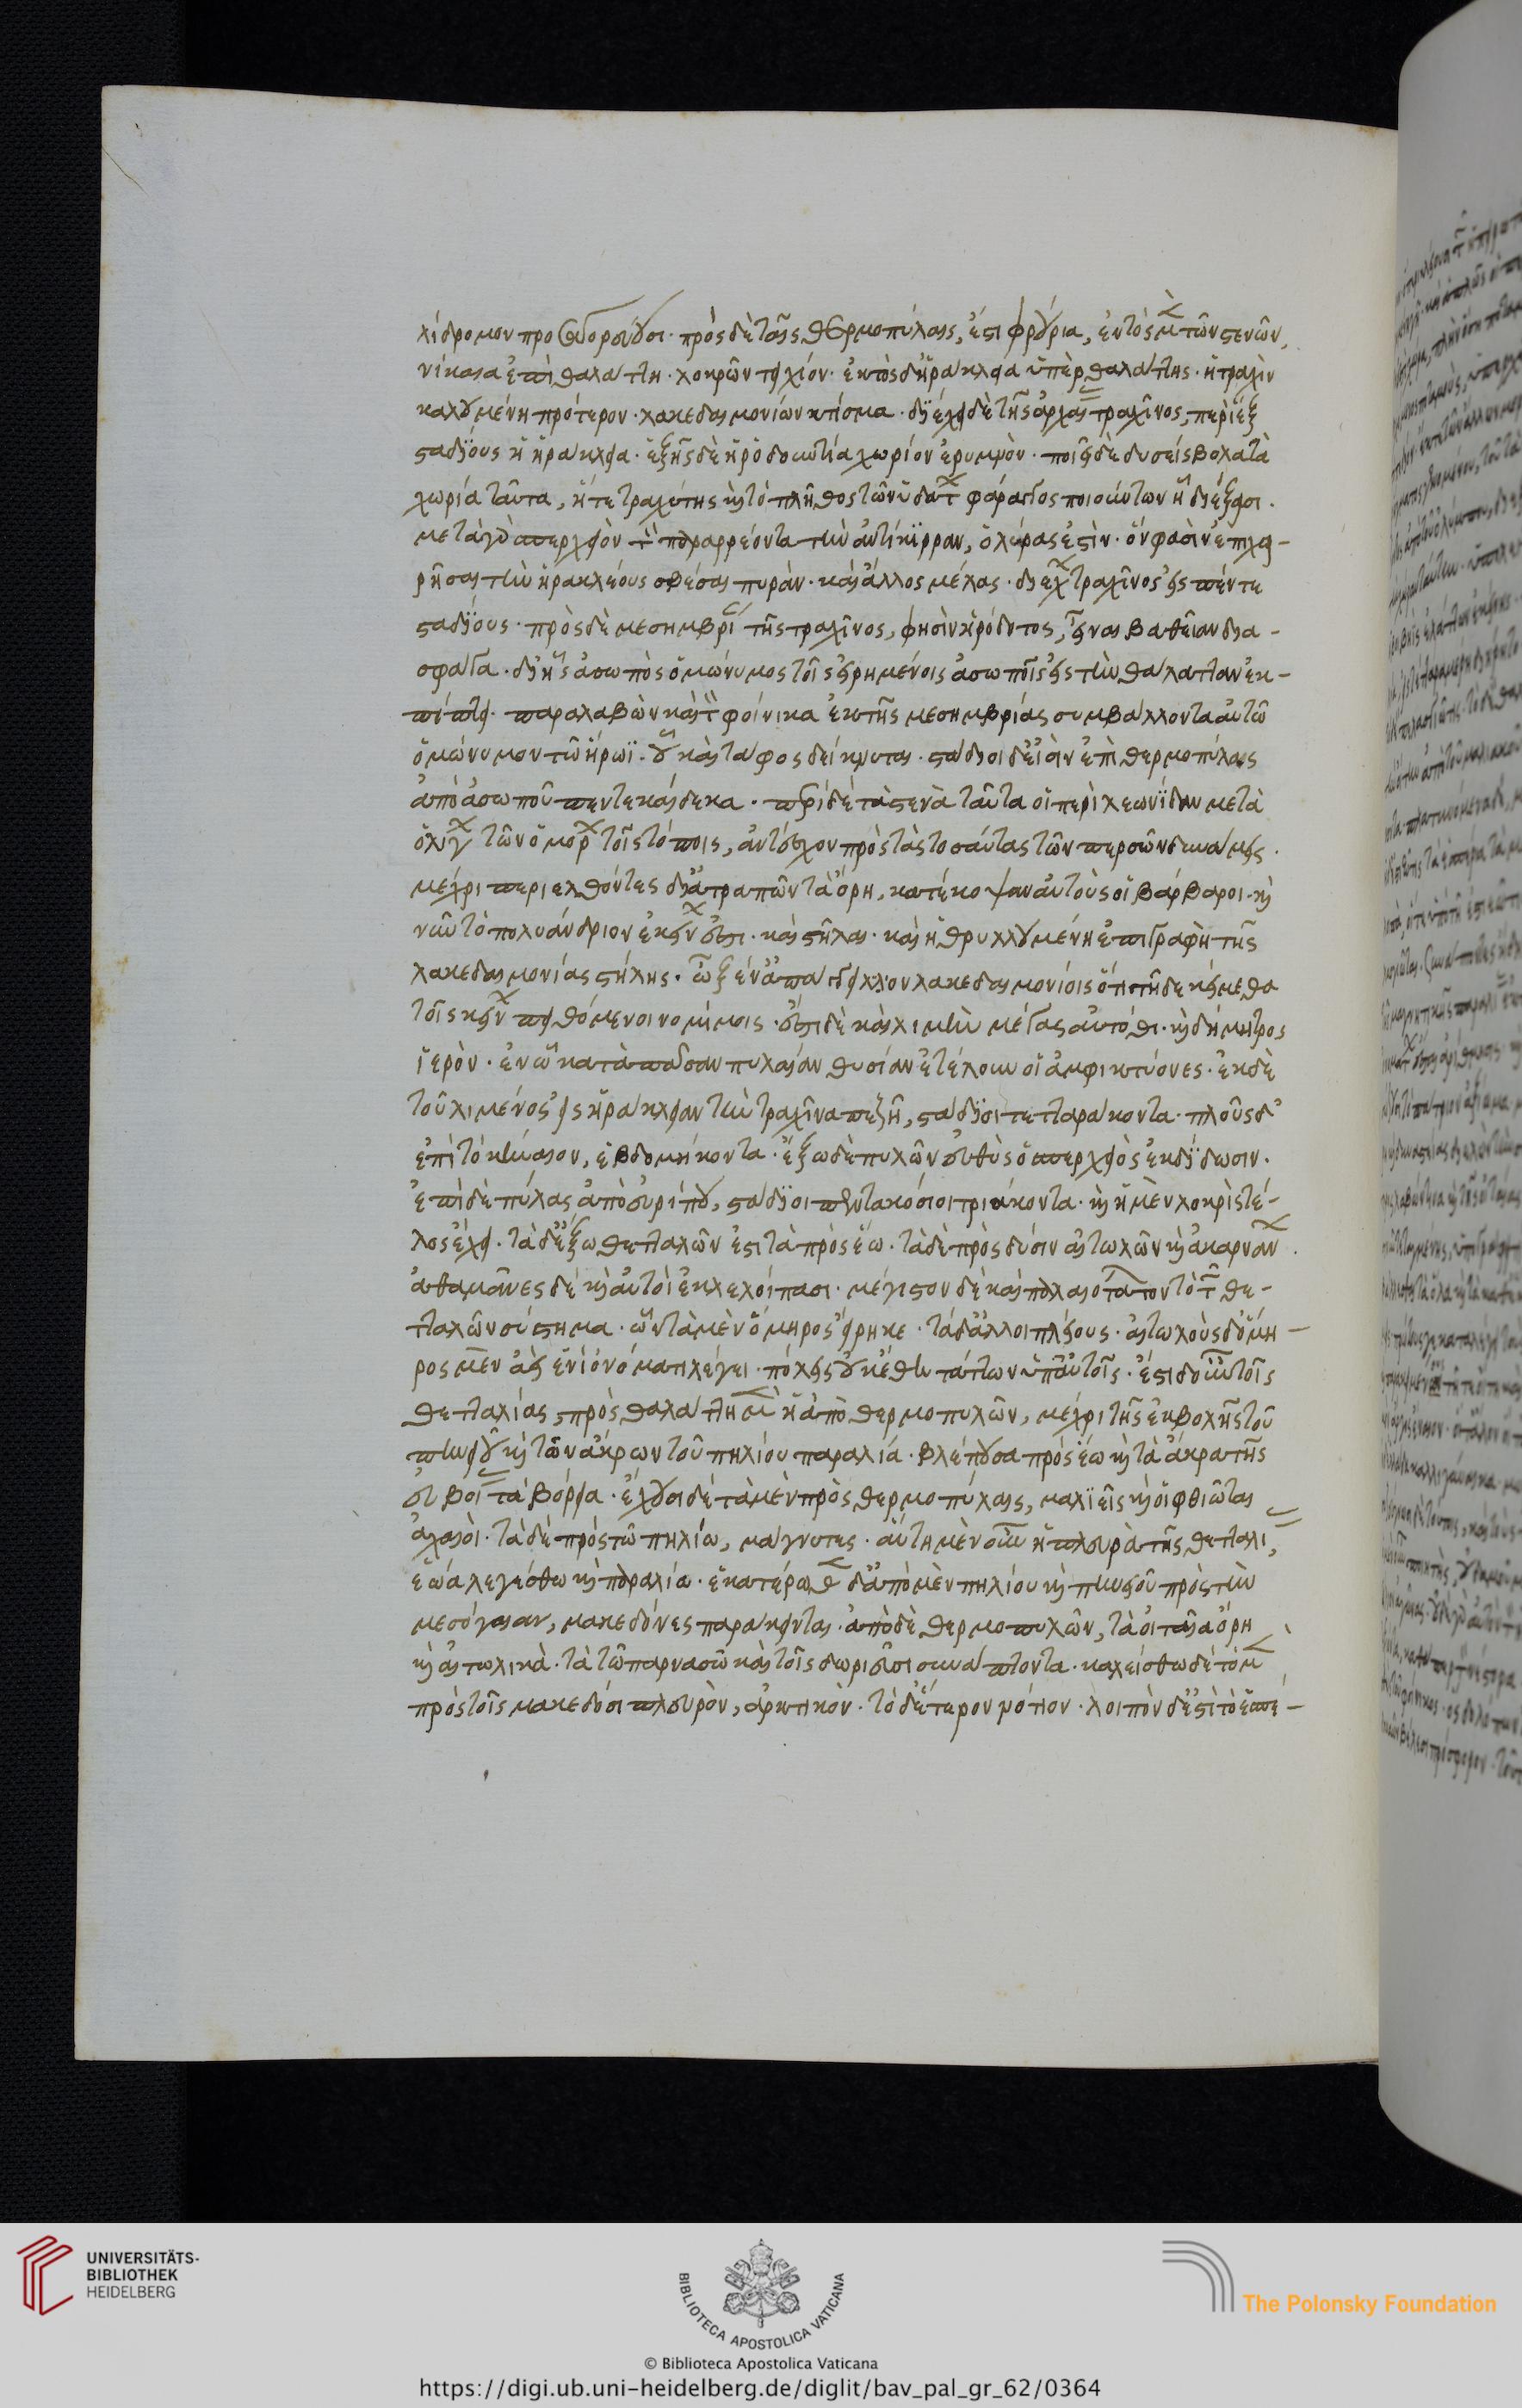 λίδρομον προσαγορεύουσι· πρὸς δὲ ταῖς θερμοπύλαις, ἔστι φρούρια, ἐντὸς μὲν τῶν στενῶν,
νίκαια ἐπὶ θαλάττη· λοκρῶν τειχίον· ἐκτὸς δὲ ἡράκλεια ὑπὲρ θαλάττης· ἡ τραχὶν
καλουμένη πρότερον· λακεδαιμονίων κτίσμα· διέχει δὲ τῆς ἀρχαίας τραχῖνος, περὶ ἓξ
σταδίους ἡ ἡράκλεια· ἑξῆς δὲ ἡ ῥοδουντία χωρίον ἐρυμνὸν· ποιεῖ δὲ δυσείσβολα τὰ
χωρία ταῦτα, ἥ τε τραχύτης καὶ τὸ πλῆθος τῶν ὑδάτων φάραγγας ποιούντων ἃς διέξεισι·
μετὰ γὰρ σπερχειὸν τὸν παραρρέοντα τὴν ἀντίκιρραν, ὁ λύρας ἐστίν· ὅν φασὶν ἐπιχει-
ρῆσαι τὴν ἡρακλέους σβέσαι πυράν· καὶ ἄλλος μέλας· διέχων τραχῖνος εἰς πέντε
σταδίους· πρὸς δὲ μεσημβρίαν τῆς τραχῖνος, φησὶν ἡρόδοτος, εἶναι βαθεῖαν δια-
σφάγα· δι' ἧς ἀσωπὸς ὁμώνυμος τοῖς εἰρημένοις ἀσωποῖς εἰς τὴν θάλατταν ἐκ-
πίπτει· παραλαβὼν καὶ τὸν φοίνικα ἐκ τῆς μεσημβρίας συμβάλλοντα αὐτῶ
ὁμώνυμον τῶ ἥρωϊ· οὗ καὶ τάφος δείκνυται· στάδιοι δ' εἰσὶν ἐπὶ θερμοπύλας
ἀπὸ ἀσωποῦ πεντεκαίδεκα· περὶ δὲ τὰ στενὰ ταῦτα οἱ περὶ λεωνίδαν μετὰ
ὀλίγων τῶν ὁμόρων τοῖς τόποις, ἀντέσχον πρὸς τὰς τοσαύτας τῶν περσῶν δυνάμεις·
μέχρι περιελθόντες δι' ἀτραπῶν τὰ ὄρη, κατέκοψαν αὐτοὺς οἱ βάρβαροι· καὶ
νῦν τὸ πολυάνδριον ἐκείνων ἔστι· καὶ στῆλαι· καὶ ἡ θρυλλουμένη ἐπιγραφὴ τῆς
λακεδαιμονίας στήλης· ὦ ξέν' ἀπάγγειλον λακεδαιμονίοις ὅτι τῆδε κείμεθα
τοῖς κείνων πειθόμενοι νομίμοις· ἔστι δὲ καὶ λιμὴν μέγας αὐτόθι· καὶ δήμητρος
ἱερὸν· ἐν ᾧ κατὰ πᾶσαν πυλαίαν θυσίαν ἐτέλουν οἱ ἀμφικτύονες· ἐκ δὲ
τοῦ λιμένος εἰς ἡράκλειαν τὴν τραχῖνα πεζῆ, στάδιοι τετταράκοντα· πλοῦς δ'
ἐπὶ τὸ κήναιον, ἑβδομήκοντα· ἔξω δὲ πυλῶν εὐθὺς ὁ σπερχειὸς ἐκδίδωσιν·
ἐπὶ δὲ πύλας ἀπὸ εὐρίπου, στάδιοι πεντακόσιοι τριάκοντα· καὶ ἡ μὲν λοκρὶς τέ-
λος ἔχει· τὰ δ' ἔξω θετταλῶν ἐστι τὰ πρὸς ἕω· τὰ δὲ πρὸς δύσιν αἰτωλῶν καὶ ἀκαρνάνων·
ἀθαμᾶνες δὲ καὶ αὐτοὶ ἐκλελοίπασι· μέγιστον δὲ καὶ παλαιότατον τὸ τῶν θε-
τταλῶν σύστημα· ὧν τὰ μὲν ὅμηρος εἴρηκε· τὰ δ' ἄλλοι πλείους· αἰτωλοὺς δ' ὅμη-
ρος μὲν ἀεὶ ἑνὶ ὀνόματι λέγει· πόλεις οὐκ ἔθνη τάττων ὑπ' αὐτοῖς· ἔστι δ' οὖν τοῖς
θετταλίας, πρὸς θαλάττη μὲν ἡ ἀπὸ θερμοπυλῶν, μέχρι τῆς ἐκβολῆς τοῦ
πηνειοῦ καὶ τῶν ἄκρων τοῦ πηλίου παραλία· βλέπουσα πρὸς ἕω καὶ τὰ ἄκρα τῆς
εὐβοίας τὰ βόρεια· ἔχουσι δὲ τὰ μὲν πρὸς θερμοπύλαις, μαλιεῖς καὶ οἱ φθιῶται
ἀχαιοὶ· τὰ δὲ πρὸς τῶ πηλίω, μάγνητες· αὕτη μὲν οὖν ἡ πλευρὰ τῆς θετταλίας,
ἑώα λεγέσθω καὶ παραλία· ἑκατέρωθεν δ' ἀπὸ μὲν πηλίου καὶ πηνειοῦ πρὸς τὴν
μεσόγαιαν, μακεδόνες παράκεινται· ἀπὸ δὲ θερμοπυλῶν, τὰ οἰταῖα ὄρη
καὶ αἰτωλικὰ· τὰ τῶ παρνασῶ καὶ τοῖς δωριεῦσι συνάπτοντα· καλείσθω δὲ τὸ μὲν
πρὸς τοῖς μακεδόσι πλευρὸν, ἀρκτικὸν· τὸ δ' ἕτερον νότιον· λοιπὸν δ' ἐστὶ τὸ ἑσπέ-
UNIVERSITÄTS-
BIBLIOTHEK
HEIDELBERG
BIBLIOTECA APOSTOLICA VATICANA
The Polonsky Foundation
© Biblioteca Apostolica Vaticana
https://digi.ub.uni-heidelberg.de/diglit/bav_pal_gr_62/0364